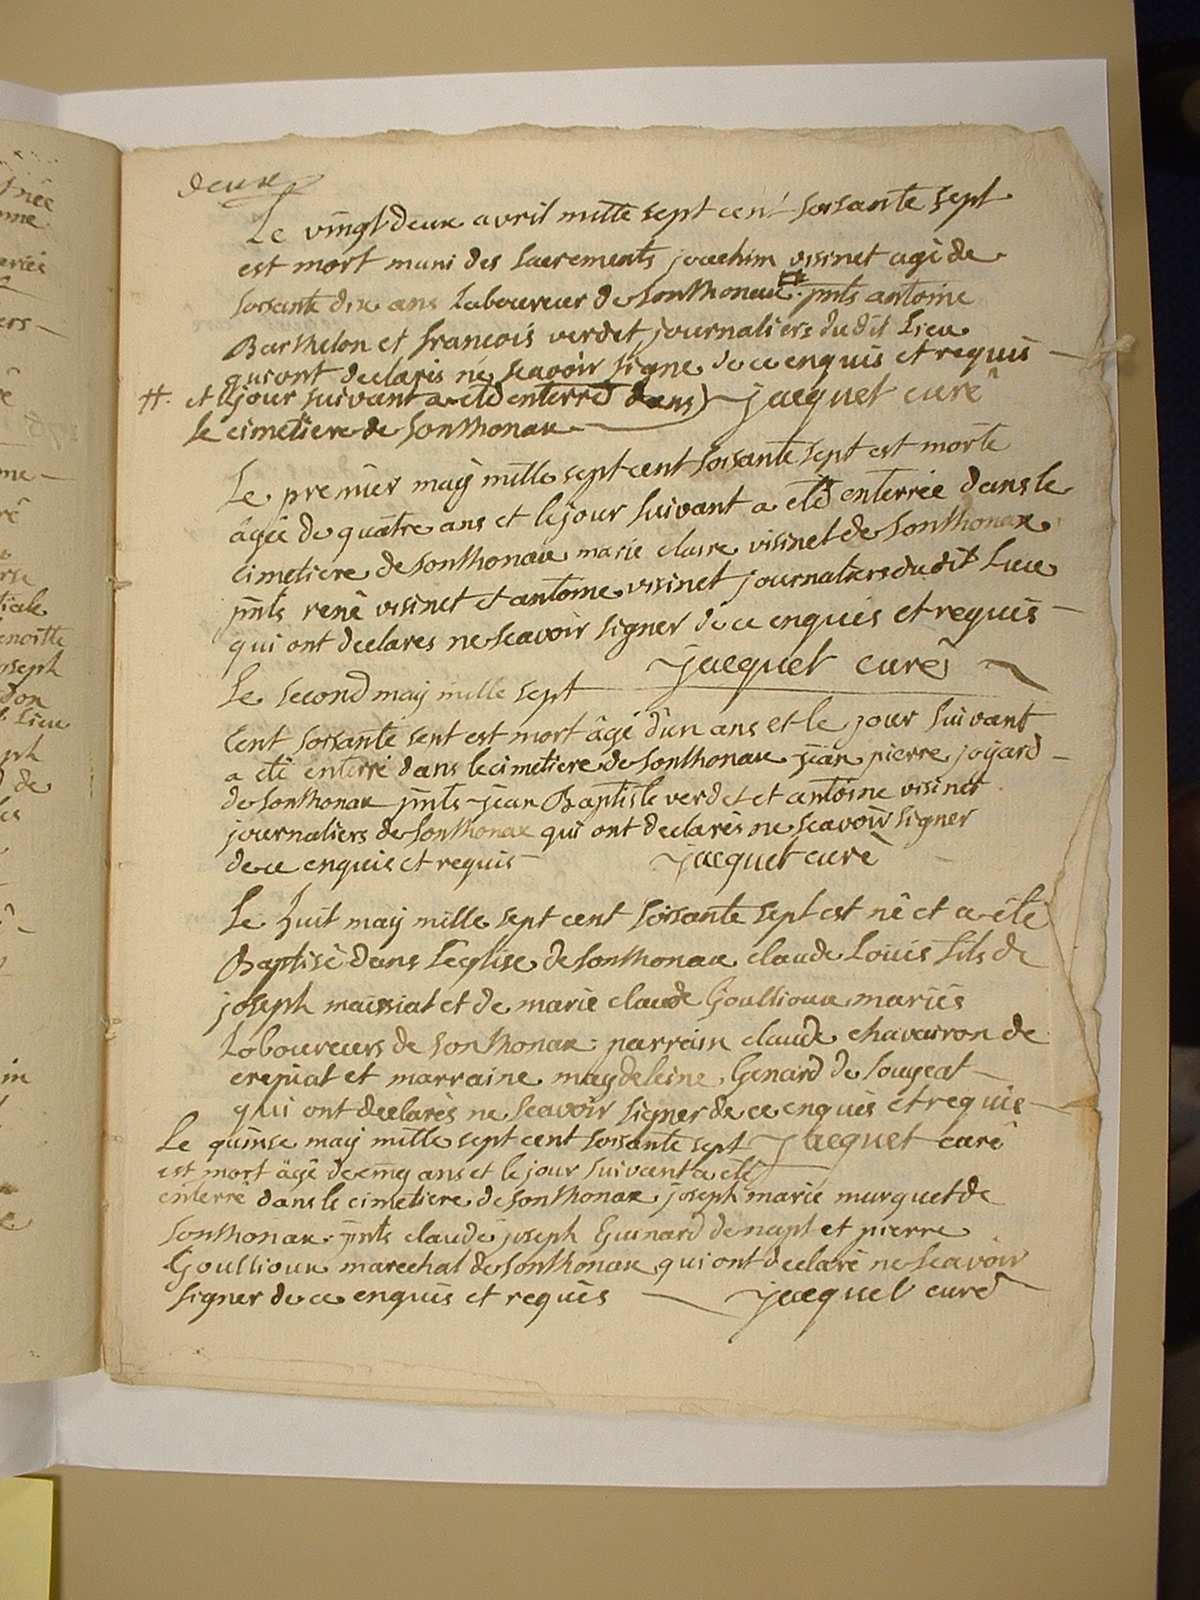 deux
Le vingt deux avril mille sept cent soisante sept
est mort muni des sacrements joachim visinet agé de
soisante dix ans laboureur de sonthonax # pnts antoine
Barthelon et francois verdet journaliers dudit Lieu
qui ont declarés ne scavoir signe de ce enquis et requis
#. et le jour suivant a eté enterré dans) jacquet curé
le cimetiere de sonthonax
Le premier maÿ mille sept cent soisante sept est morte
âgée de quatre ans et le jour suivant a eté enterrée dans le
cimetiere de sonthonax marie claire visinet de sonthonax
pnts rené visinet et antoine visinet journaliers du dit Lieu
qui ont declares ne scavoir signer de ce enquis et requis
jacquet curé
Le second maÿ mille sept
cent soisante sept est mort âgé d'un ans et le jour suivant
a eté enterré dans le cimetiere de sonthonax jean pierre joyard
de sonthonax pnts jean Baptiste verdet et antoine visinet
journaliers de sonthonax qui ont declarés ne scavoir signer
de ce enquis et requis jacquet curé
Le huit maÿ mille sept cent soisante sept est né et a eté
Baptisé dans l'eglise de sonthonax claude Louis fils de
joseph maissiat et de marie claude Goullioux mariés
Laboureurs de sonthonax parrain claude chavairon de
crepiat et marraine magdeleine Genard de sougeat
qui ont declarés ne scavoir signer de ce enquis et requis
Le quinse maÿ mille sept cent soisante sept jacquet curé
est mort âgé de cinq ans et le jour suivant a eté
enterré dans le cimetiere de sonthonax joseph marie murquet de
sonthonax pnts claude joseph Guinard de napt et pierre
Goullioux marechal de sonthonax qui ont declaré ne scavoir
signer de ce enquis et requis jacquet curé